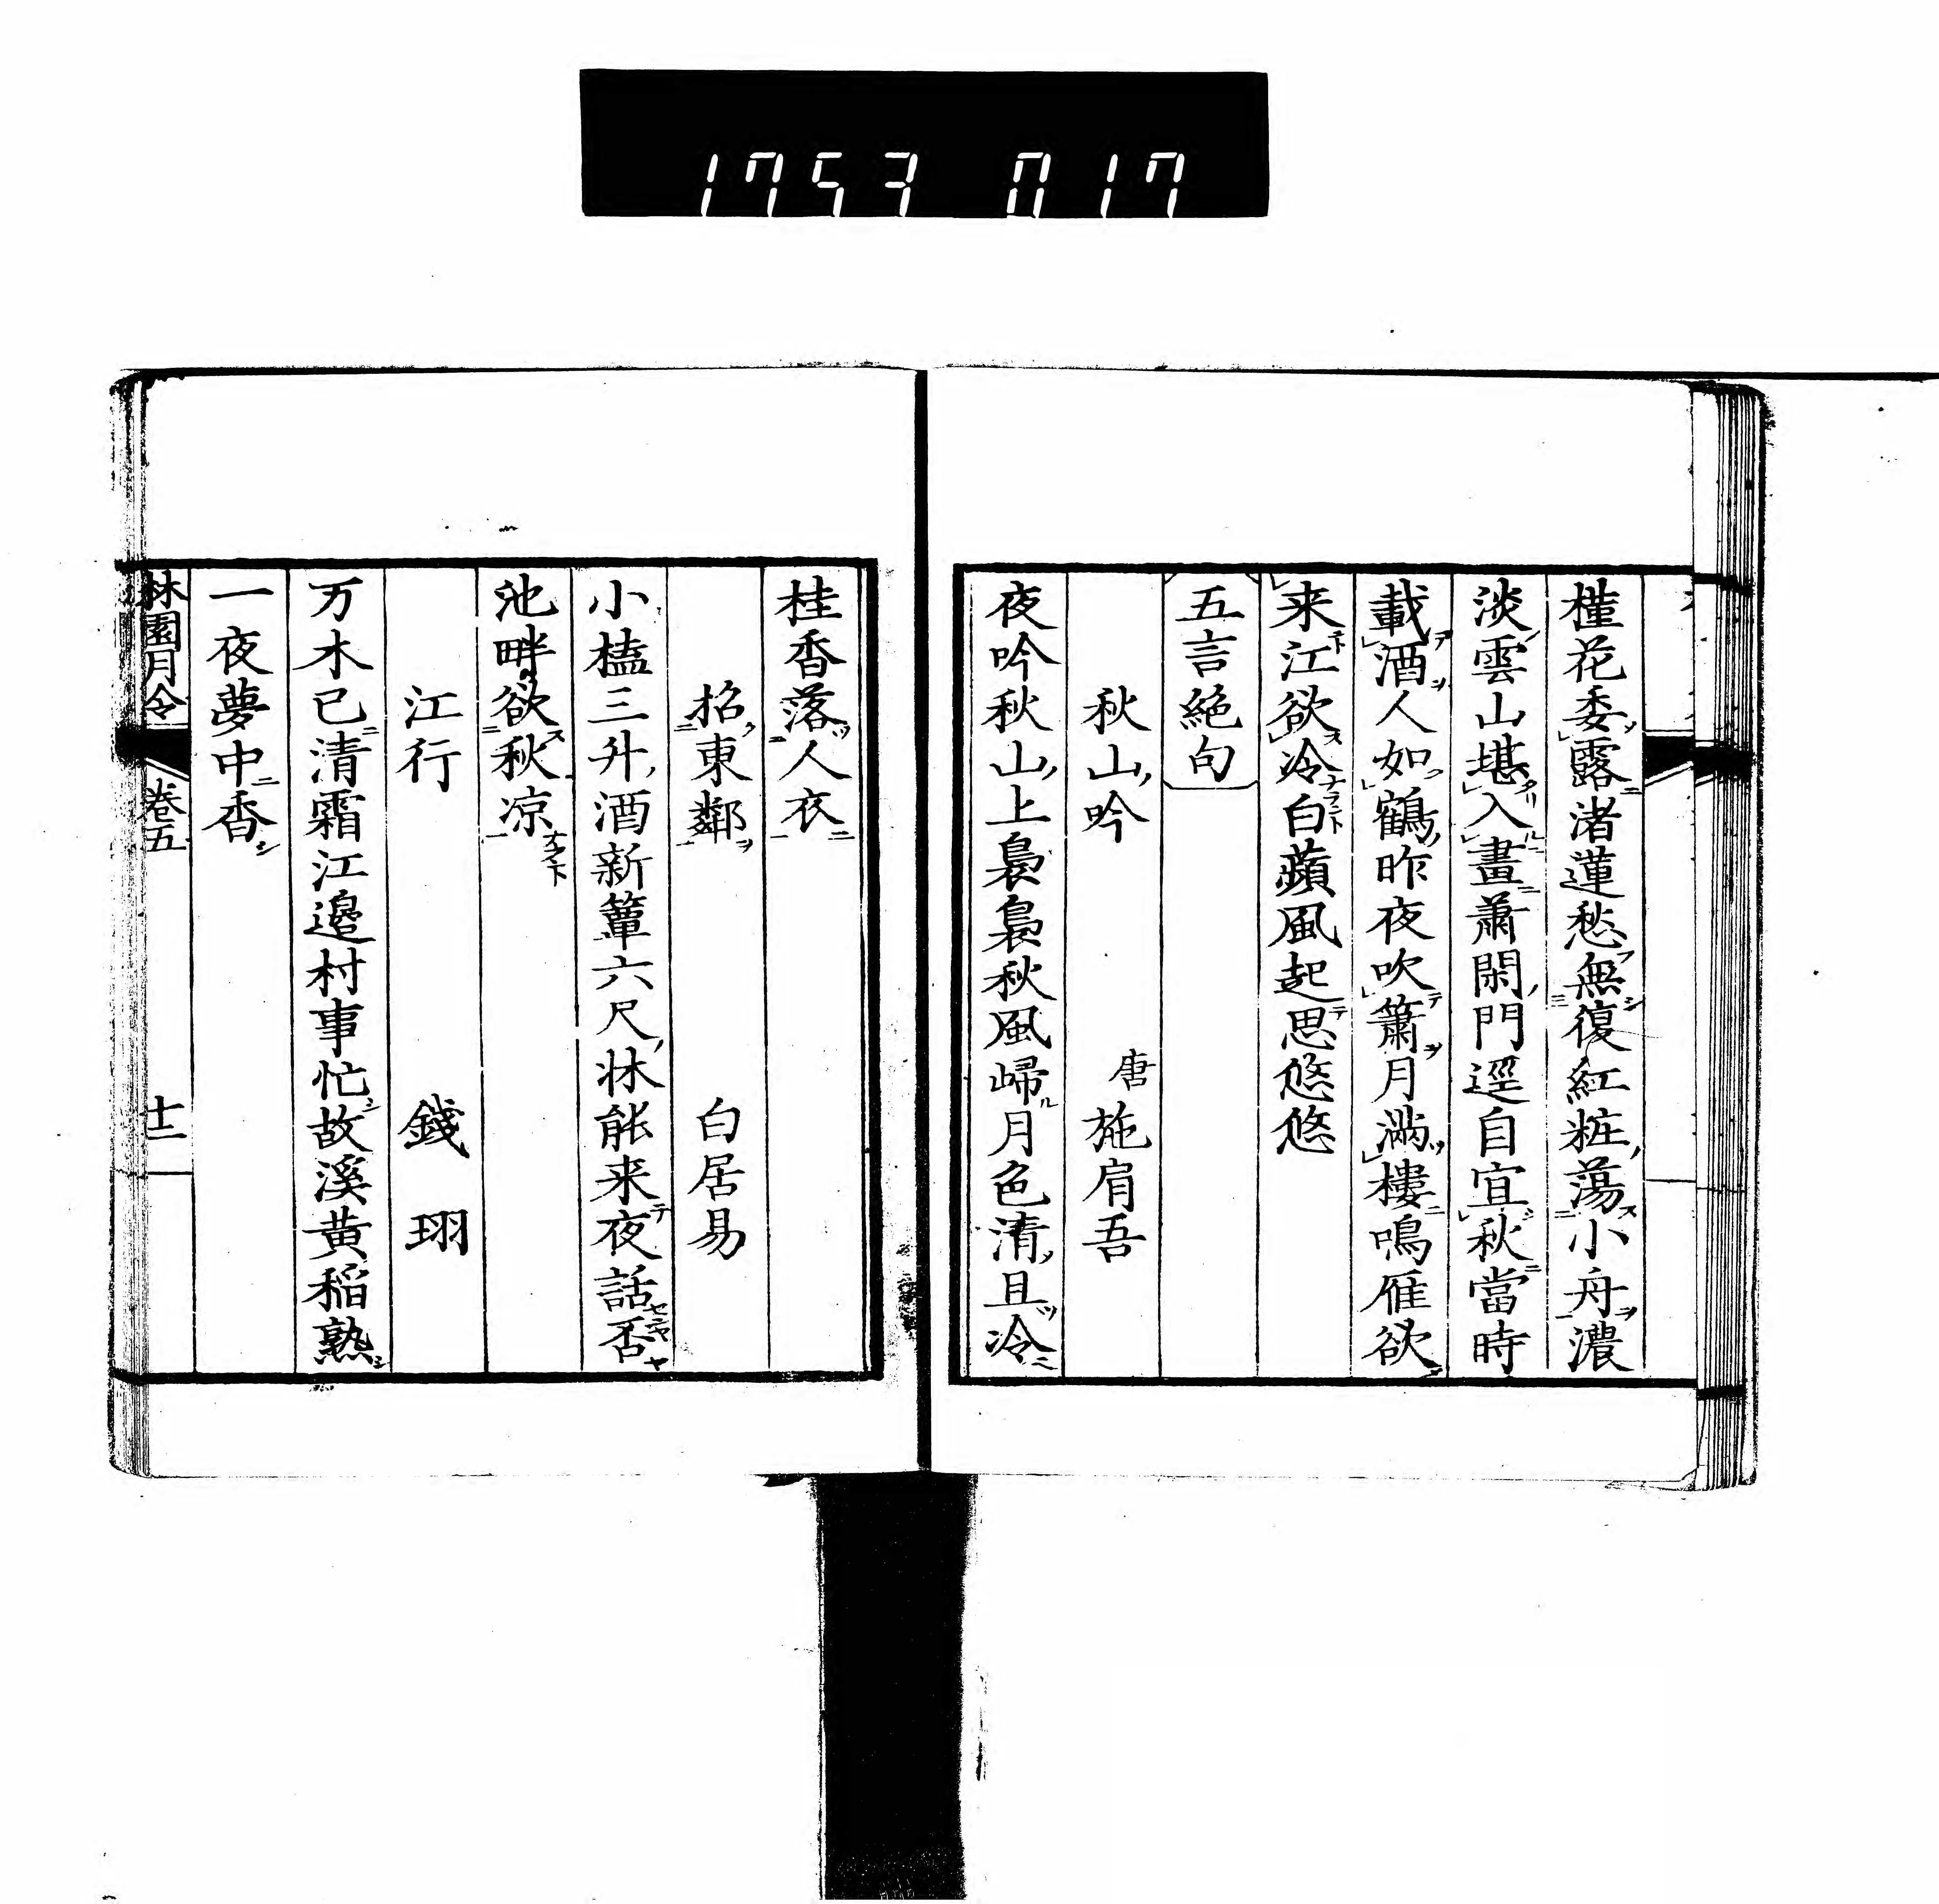 1753 017
槿花委露渚蓮愁無復紅粧蕩小舟濃
淡雲山堪入畫蕭閑門逕自宜秋當時
載酒人如鶴昨夜吹簫月滿樓鳴雁欲
来江欲冷白蘋風起思悠悠
五言絕句
秋山吟 唐 施肩吾
夜吟秋山上裊裊秋風歸月色清且冷
桂香落人衣
招東鄰 白居易
小榼三升酒新簟六尺牀能来夜話否
池畔欲秋凉
江行 錢珝
万木已清霜江邊村事忙故溪黃稲熟
一夜夢中香
林園月令 卷五 十一